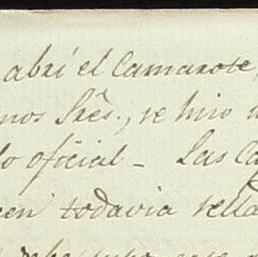 abrí el Camarote,
nos Srês., se hizo
lo oficial - Las Ca
een todavia rella